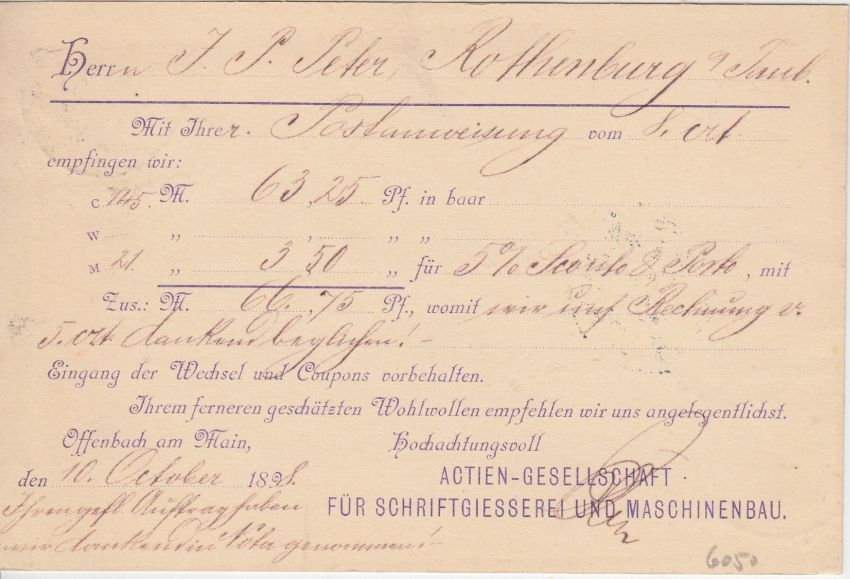 Herrn J. P. Peter, Rothenburg a/Taub.
Mit Ihrer Postanweisung vom 8. crt
empfingen wir:
C 745. M. 63,25 Pf. in baar
W „ , „ „
M 21. „ 3 50 „ für 5% Sconto & Porto, mit
Zus.: M. 66,75 Pf., womit wir uns. Rechnung v.
5. crt. dankend beglichen! –
Eingang der Wechsel und Coupons vorbehalten.
Ihrem ferneren geschätzten Wohlwollen empfehlen wir uns angelegentlichst.
Offenbach am Main, Hochachtungsvoll
den 10. October 1898.
ACTIEN-GESELLSCHAFT
FÜR SCHRIFTGIESSEREI UND MASCHINENBAU.
Ihren gefl. Auftrag haben
wir dankend in Nota genommen! –
6050